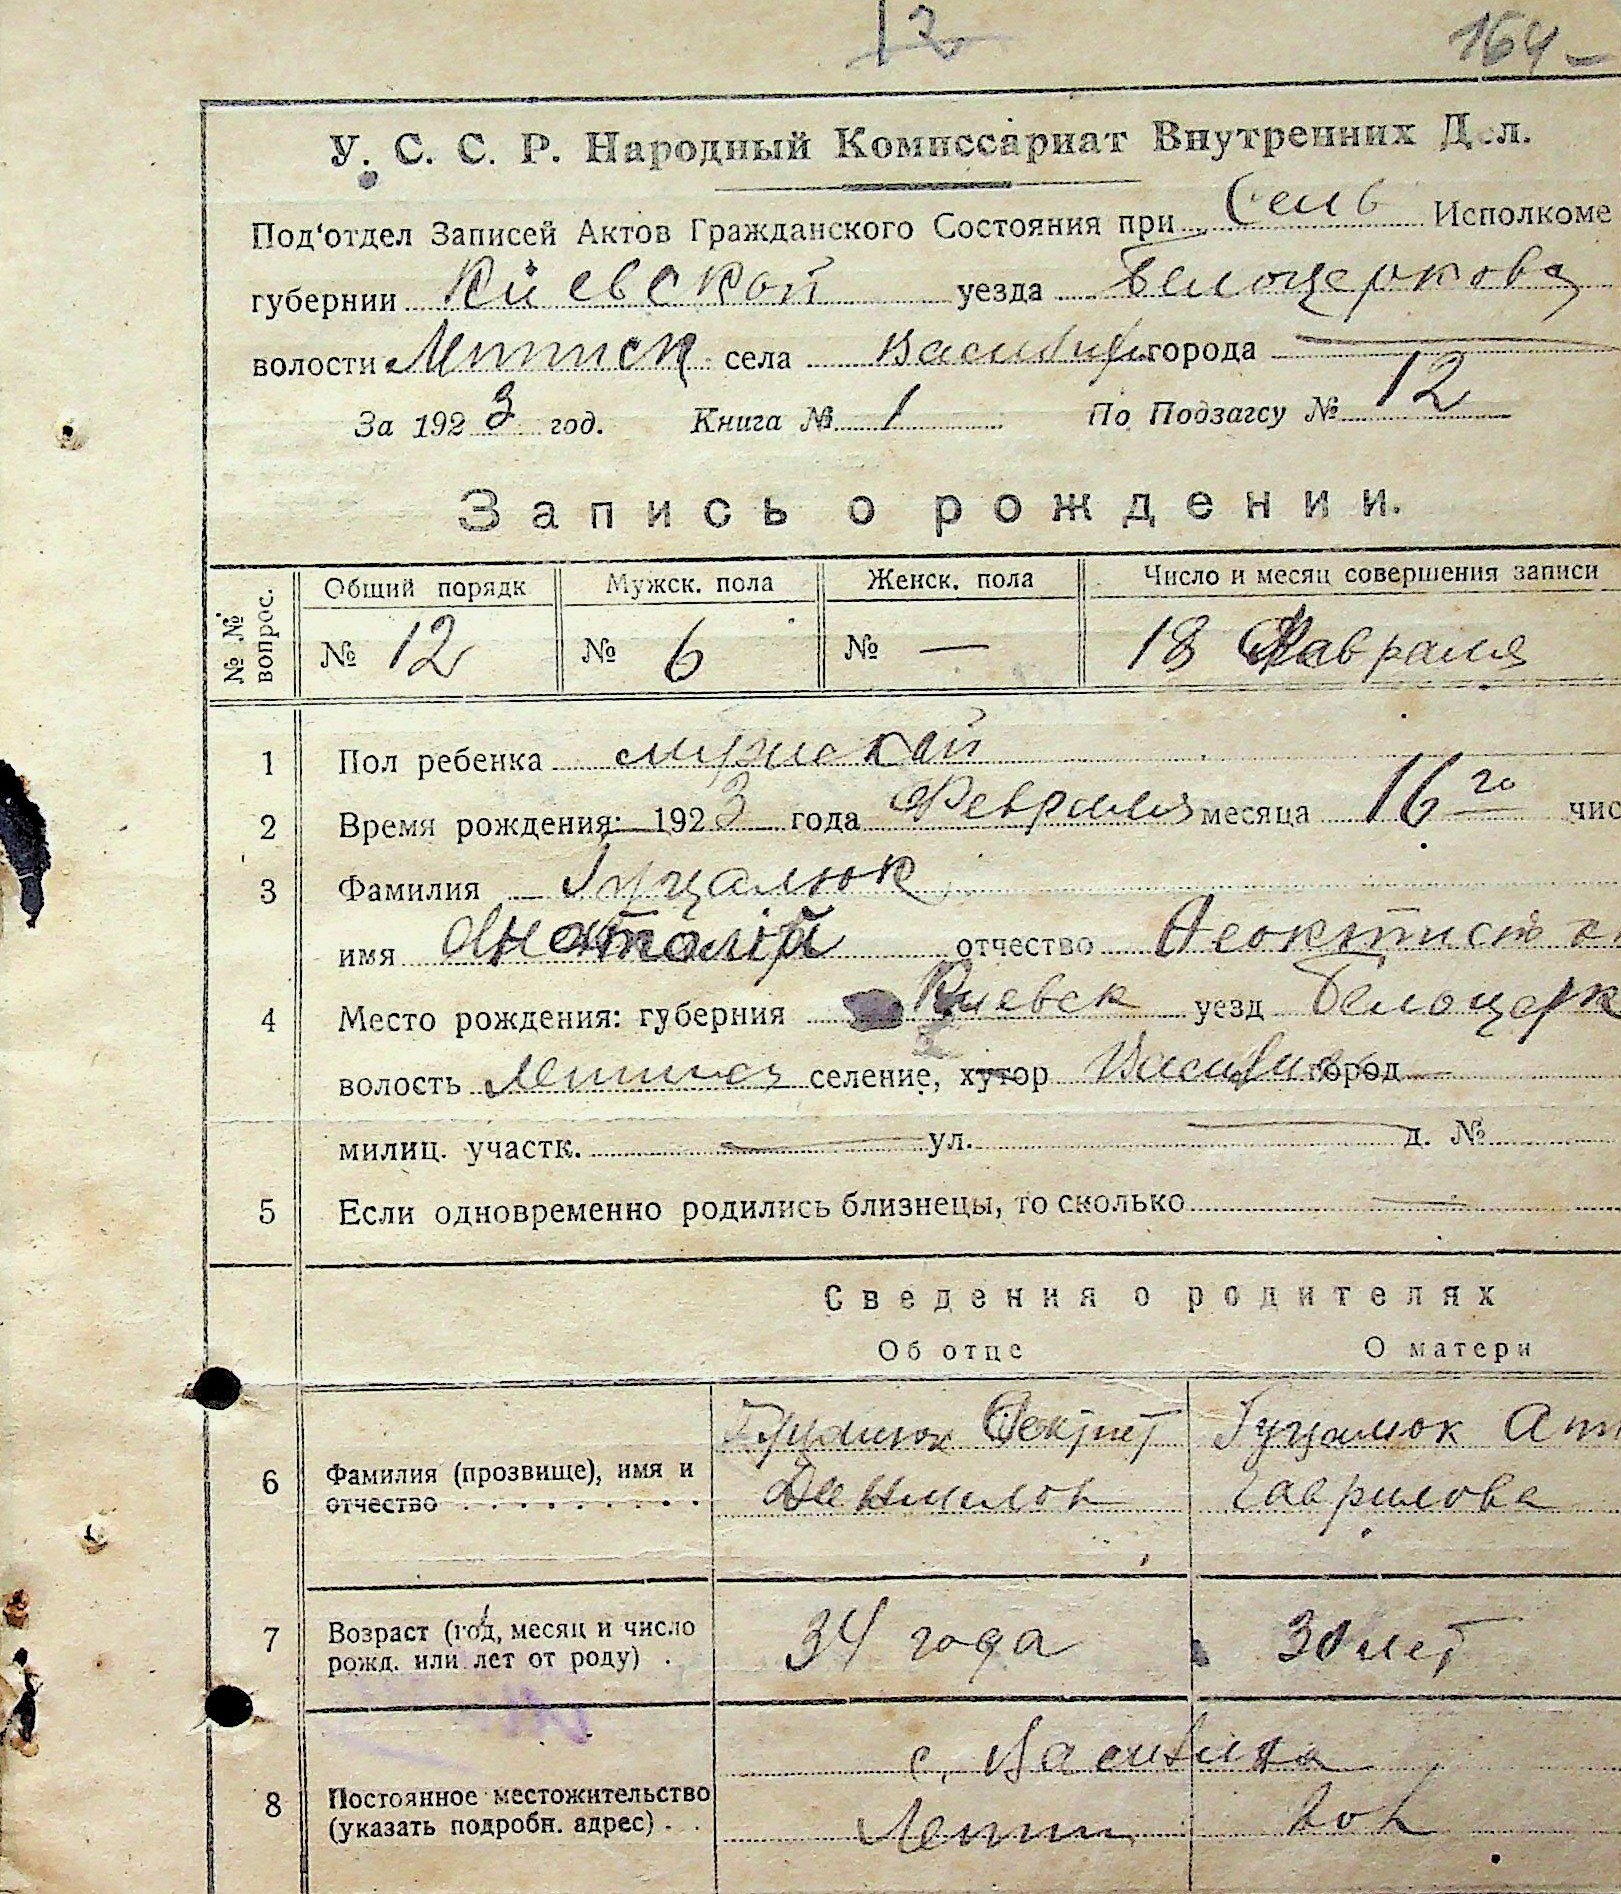 12
164 –
У. С. С. Р. Народный Комиссариат Внутренних Дел.
Под‘отдел Записей Актов Гражданского Состояния при Сель Исполкоме
губернии Киевской уезда Белоцерковс
волости села города —
За 1923 год. Книга № 1 По Подзагсу № 12
Запись о рождении.
№ № вопрос.
Общий порядк Мужск. пола Женск. пола Число и месяц совершения записи
№ 12 № 6 № — 18 Февраля
1 Пол ребенка мужской
2 Время рождения: 1923 года Февраля месяца 16го чис
3 Фамилия Гуцалюк
имя Анатолій отчество Феоктистов
4 Место рождения: губерния Киевск уезд Белоцерк
волость селение, хутор город —
милиц. участк. — ул. — д. №
5 Если одновременно родились близнецы, то сколько —
Сведения о родителях
Об отце О матери
6 Фамилия (прозвище), имя и отчество
Гуцалюк Фектист Гуцалюк
Данилов Гаврилова
7 Возраст (год, месяц и число рожд. или лет от роду) . 34 года 30 лет
8 Постоянное местожительство (указать подробн. адрес) . .
с.
вол